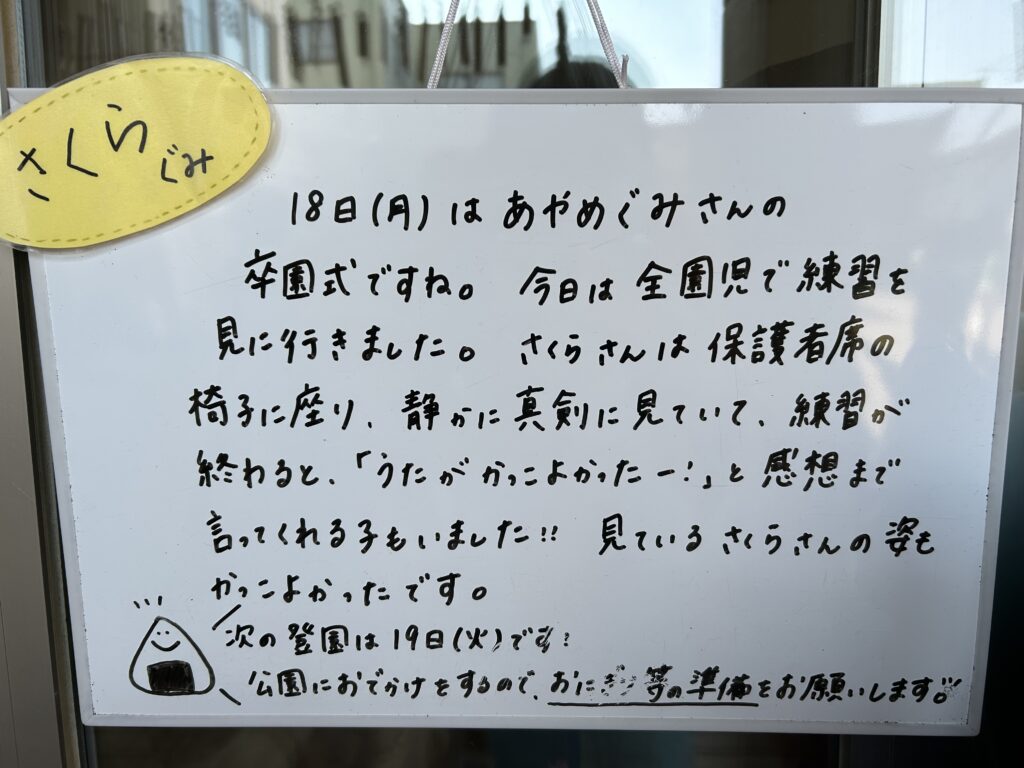 さくらぐみ
18日(月)はあやめぐみさんの
卒園式ですね。 今日は全園児で練習を
見に行きました。 さくらさんは保護者席の
椅子に座り、静かに真剣に見ていて、練習が
終わると、「うたがかっこよかったー!」と感想まで
言ってくれる子もいました!! 見ているさくらさんの姿も
かっこよかったです。
次の登園は19日(火)です!
公園におでかけをするので、おにぎり等の準備をお願いします!!